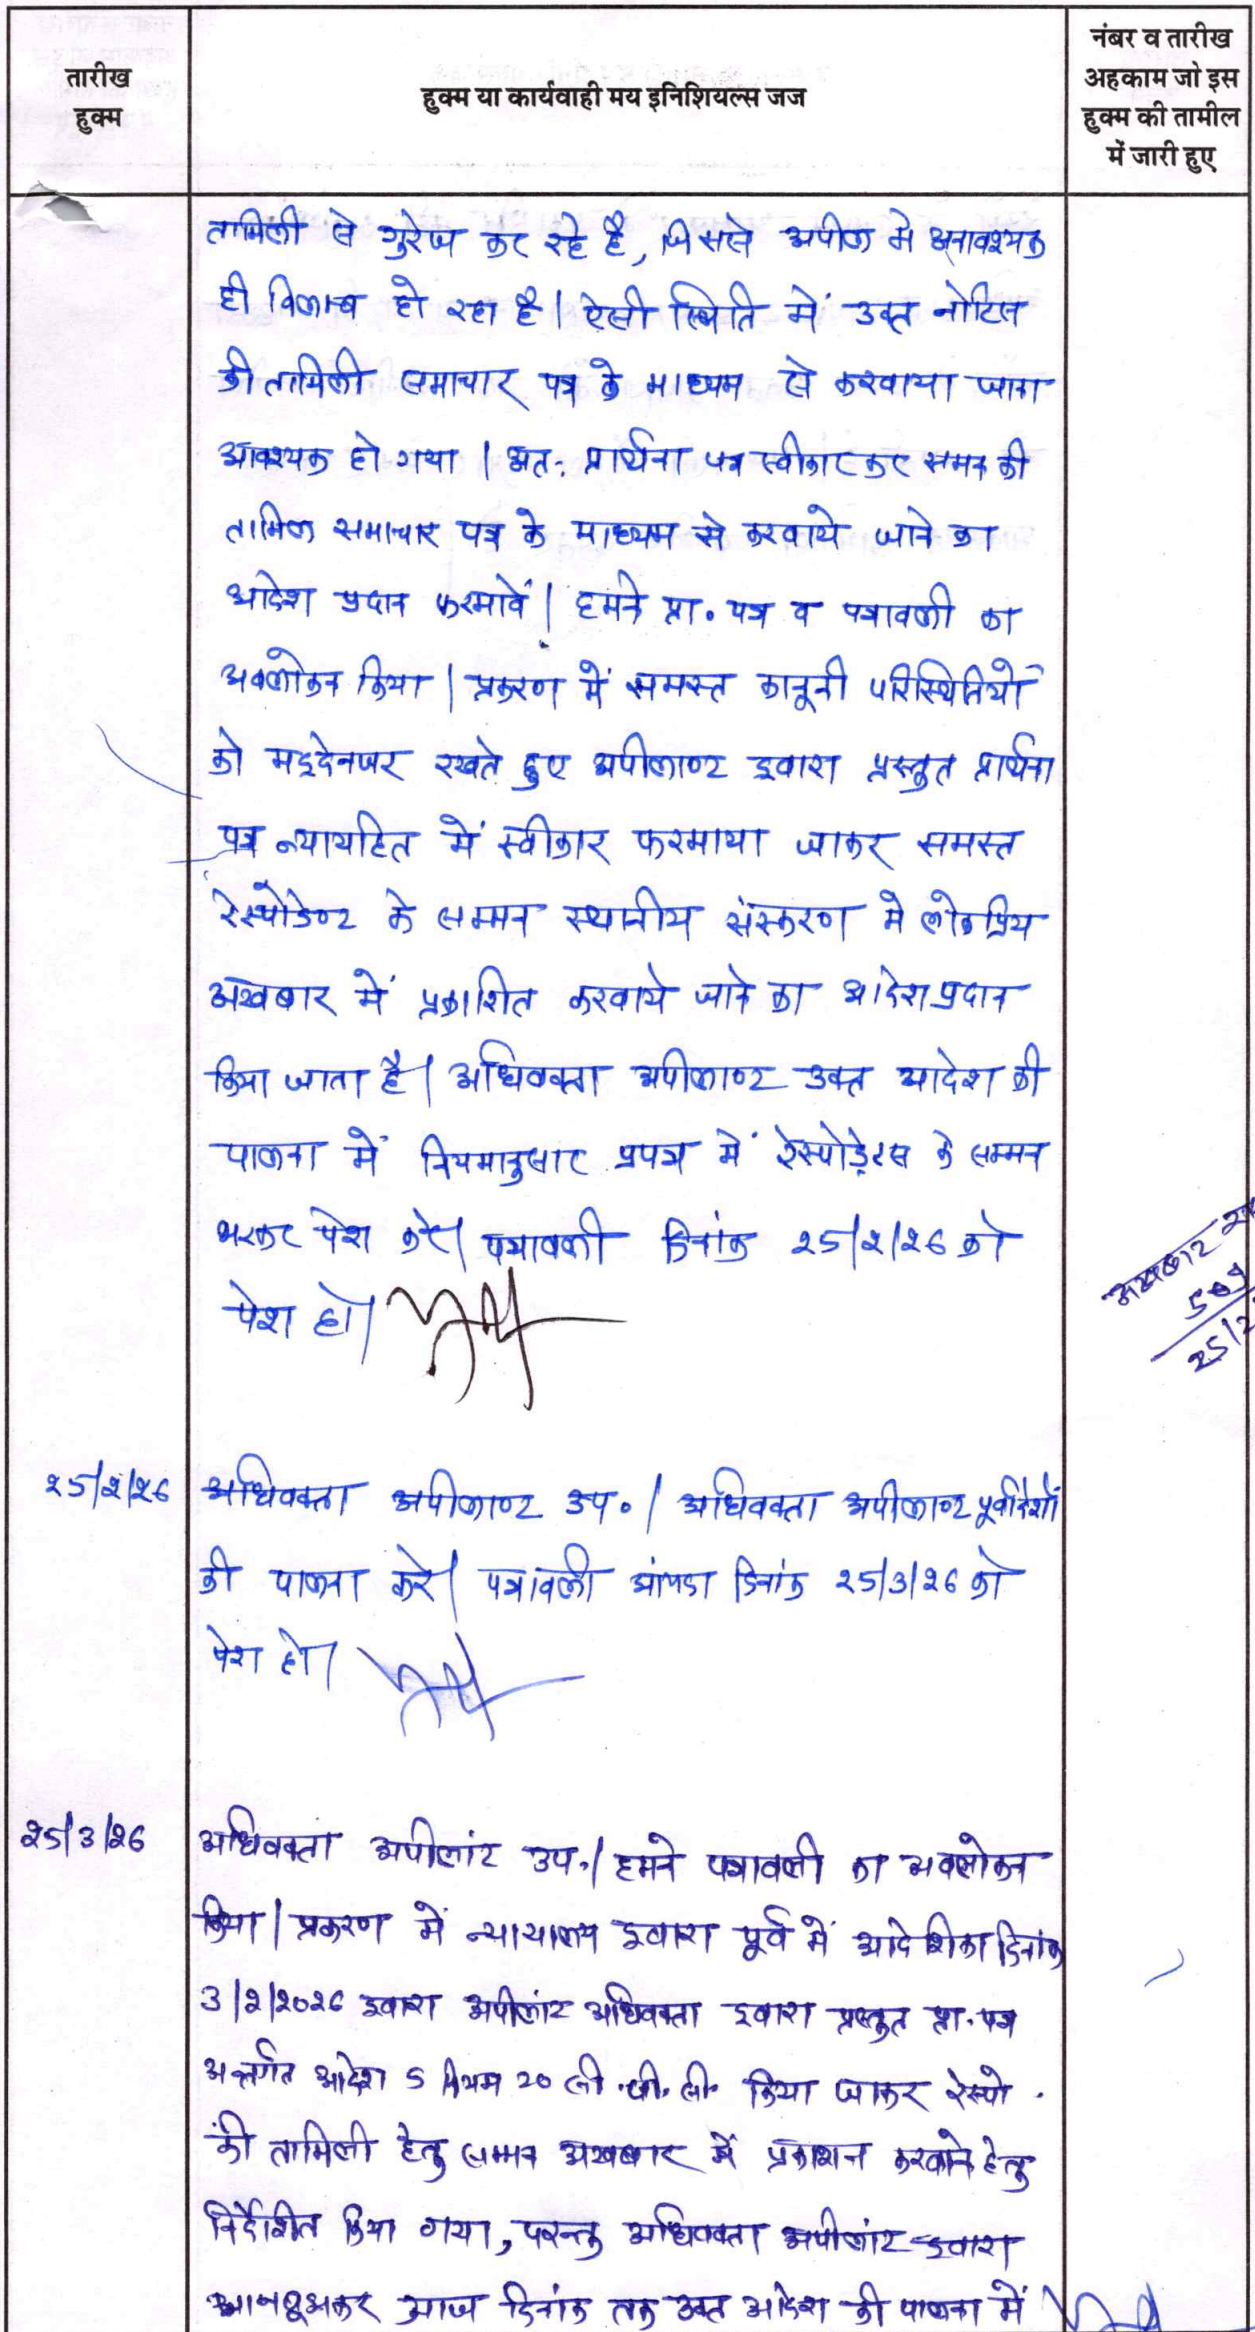 तारीख
हुक्म
हुक्म या कार्यवाही मय इनिशियल्स जज
नंबर व तारीख
अहकाम जो इस
हुक्म की तामील
में जारी हुए
तामिली से गुरेज कर रहे है, जिससे अपील मे अनावश्यक
ही विलम्ब हो रहा है। ऐसी स्थिति में उक्त नोटिस
की तामिली समाचार पत्र के माध्यम से करवाया जाना
आवश्यक हो गया। अतः प्रार्थना पत्र स्वीकार कर समन की
तामिल समाचार पत्र के माध्यम से करवाये जाने का
आदेश प्रदान फरमावें। हमने प्रा. पत्र व पत्रावली का
अवलोकन किया। प्रकरण में समस्त कानूनी परिस्थितियों
को मद्देनजर रखते हुए अपीलाण्ट द्वारा प्रस्तुत प्रार्थना
पत्र न्यायहित में स्वीकार फरमाया जाकर समस्त
रेस्पोडेण्ट के सम्मन स्थानीय संस्करण मे लोकप्रिय
अखबार में प्रकाशित करवाये जाने का आदेश प्रदान
किया जाता है। अधिवक्ता अपीलाण्ट उक्त आदेश की
पालना में नियमानुसार प्रपत्र में रेस्पोडेंटस के सम्मन
भरकर पेश करे। पत्रावली दिनांक 25/2/26 को
पेश हो।
अखबार
25/2
25/2/26
अधिवक्ता अपीलाण्ट उप०। अधिवक्ता अपीलाण्ट पूर्वादेशों
की पालना करे। पत्रावली दिनांक 25/3/26 को
पेश हो।
25/3/26
अधिवक्ता अपीलांट उप.। हमने पत्रावली का अवलोकन
किया। प्रकरण में न्यायालय द्वारा पूर्व में आदेशिका दिनांक
3/2/2026 द्वारा अपीलांट अधिवक्ता द्वारा प्रस्तुत प्रा. पत्र
अन्तर्गत आदेश 5 नियम 20 सी.पी.सी. किया जाकर रेस्पो.
की तामिली हेतु सम्मन अखबार में प्रकाशन करवाने हेतु
निर्देशित किया गया, परन्तु अधिवक्ता अपीलांट द्वारा
जानबूझकर आज दिनांक तक उक्त आदेश की पालना में